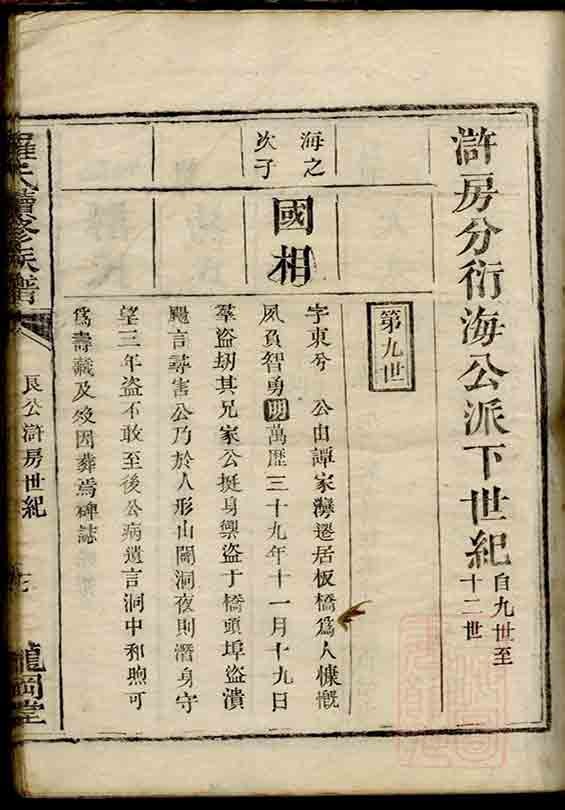 滸房分衍海公派下世紀自九世至十二世
第九世
海之次子
國相
字東兮 公由譚家灣遷居板橋爲人慷慨
夙負智勇明萬歷三十九年十一月十九日
羣盜刼其兄家公挺身禦盜于橋頭埠盜潰
颺言尋害公乃於人形山闢洞夜則潛身守
望三年盜不敢至後公病遺言洞中和煦可
爲壽藏及歿因葬焉碑誌
羅氏續修族譜
艮公滸房世紀
龍岡堂